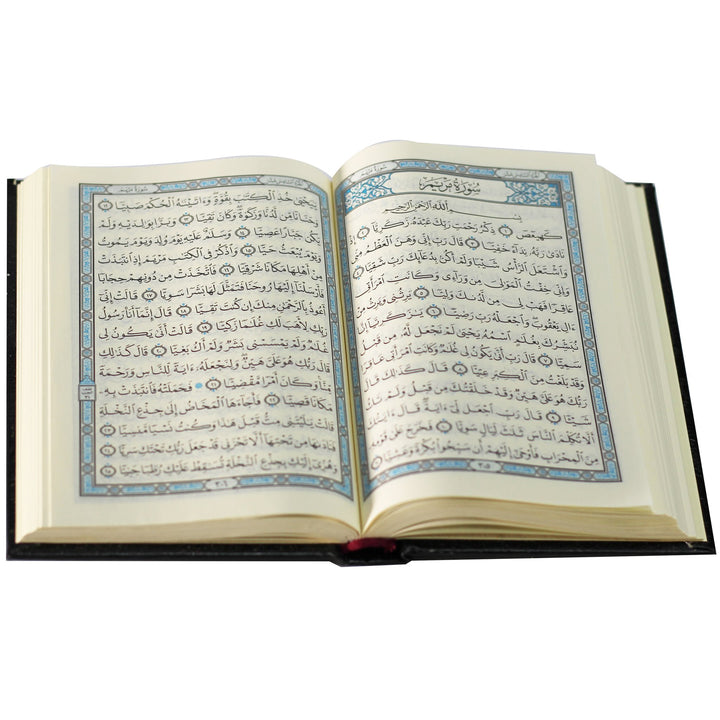 سُورَةُ مَرْيَمَ الجُزْءُ السَّادِسَ عَشَرَ
سُورَةُ مَرْيَمَ
بِسْمِ ٱللَّهِ ٱلرَّحْمَٰنِ ٱلرَّحِيمِ
كٓهيعٓصٓ ١ ذِكْرُ رَحْمَتِ رَبِّكَ عَبْدَهُۥ زَكَرِيَّآ ٢ إِذْ
نَادَىٰ رَبَّهُۥ نِدَآءً خَفِيًّا ٣ قَالَ رَبِّ إِنِّي وَهَنَ ٱلْعَظْمُ مِنِّي
وَٱشْتَعَلَ ٱلرَّأْسُ شَيْبًا وَلَمْ أَكُنۢ بِدُعَآئِكَ رَبِّ شَقِيًّا ٤
وَإِنِّي خِفْتُ ٱلْمَوَٰلِيَ مِن وَرَآءِي وَكَانَتِ ٱمْرَأَتِي
عَاقِرًا فَهَبْ لِي مِن لَّدُنكَ وَلِيًّا ٥ يَرِثُنِي وَيَرِثُ مِنْ
ءَالِ يَعْقُوبَ وَٱجْعَلْهُ رَبِّ رَضِيًّا ٦ يَٰزَكَرِيَّآ إِنَّا
نُبَشِّرُكَ بِغُلَٰمٍ ٱسْمُهُۥ يَحْيَىٰ لَمْ نَجْعَل لَّهُۥ مِن قَبْلُ
سَمِيًّا ٧ قَالَ رَبِّ أَنَّىٰ يَكُونُ لِي غُلَٰمٌ وَكَانَتِ ٱمْرَأَتِي عَاقِرًا
وَقَدْ بَلَغْتُ مِنَ ٱلْكِبَرِ عِتِيًّا ٨ قَالَ كَذَٰلِكَ قَالَ
رَبُّكَ هُوَ عَلَيَّ هَيِّنٌ وَقَدْ خَلَقْتُكَ مِن قَبْلُ وَلَمْ تَكُ
شَيْـًٔا ٩ قَالَ رَبِّ ٱجْعَل لِّيٓ ءَايَةً قَالَ ءَايَتُكَ
أَلَّا تُكَلِّمَ ٱلنَّاسَ ثَلَٰثَ لَيَالٍ سَوِيًّا ١٠ فَخَرَجَ عَلَىٰ قَوْمِهِۦ
مِنَ ٱلْمِحْرَابِ فَأَوْحَىٰٓ إِلَيْهِمْ أَن سَبِّحُوا۟ بُكْرَةً وَعَشِيًّا ١١
٣٠٥
سُورَةُ مَرْيَمَ الجُزْءُ السَّادِسَ عَشَرَ
يَٰيَحْيَىٰ خُذِ ٱلْكِتَٰبَ بِقُوَّةٍ وَءَاتَيْنَٰهُ ٱلْحُكْمَ صَبِيًّا ١٢
وَحَنَانًا مِّن لَّدُنَّا وَزَكَوٰةً وَكَانَ تَقِيًّا ١٣ وَبَرًّۢا بِوَٰلِدَيْهِ وَلَمْ
يَكُن جَبَّارًا عَصِيًّا ١٤ وَسَلَٰمٌ عَلَيْهِ يَوْمَ وُلِدَ وَيَوْمَ يَمُوتُ
وَيَوْمَ يُبْعَثُ حَيًّا ١٥ وَٱذْكُرْ فِي ٱلْكِتَٰبِ مَرْيَمَ إِذِ ٱنتَبَذَتْ
مِنْ أَهْلِهَا مَكَانًا شَرْقِيًّا ١٦ فَٱتَّخَذَتْ مِن دُونِهِمْ حِجَابًا
فَأَرْسَلْنَآ إِلَيْهَا رُوحَنَا فَتَمَثَّلَ لَهَا بَشَرًا سَوِيًّا ١٧ قَالَتْ إِنِّيٓ
أَعُوذُ بِٱلرَّحْمَٰنِ مِنكَ إِن كُنتَ تَقِيًّا ١٨ قَالَ إِنَّمَآ أَنَا۠ رَسُولُ
رَبِّكِ لِأَهَبَ لَكِ غُلَٰمًا زَكِيًّا ١٩ قَالَتْ أَنَّىٰ يَكُونُ لِي
غُلَٰمٌ وَلَمْ يَمْسَسْنِي بَشَرٌ وَلَمْ أَكُ بَغِيًّا ٢٠ قَالَ كَذَٰلِكِ
قَالَ رَبُّكِ هُوَ عَلَيَّ هَيِّنٌ وَلِنَجْعَلَهُۥٓ ءَايَةً لِّلنَّاسِ وَرَحْمَةً
مِّنَّا وَكَانَ أَمْرًا مَّقْضِيًّا ٢١ فَحَمَلَتْهُ فَٱنتَبَذَتْ بِهِۦ
مَكَانًا قَصِيًّا ٢٢ فَأَجَآءَهَا ٱلْمَخَاضُ إِلَىٰ جِذْعِ ٱلنَّخْلَةِ
قَالَتْ يَٰلَيْتَنِي مِتُّ قَبْلَ هَٰذَا وَكُنتُ نَسْيًا مَّنسِيًّا ٢٣
فَنَادَىٰهَا مِن تَحْتِهَآ أَلَّا تَحْزَنِي قَدْ جَعَلَ رَبُّكِ تَحْتَكِ سَرِيًّا ٢٤
وَهُزِّيٓ إِلَيْكِ بِجِذْعِ ٱلنَّخْلَةِ تُسَٰقِطْ عَلَيْكِ رُطَبًا جَنِيًّا ٢٥
٣٠٦